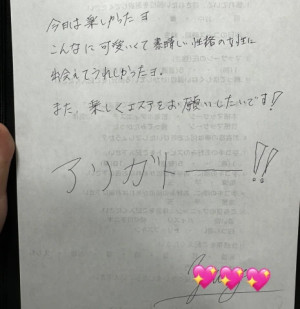 今日は楽しかったヨ
こんなに可愛いくて素晴しい性格の女性に
出会えてうれしかったヨ.
また、楽しくエステをお願いしたいです!
アリガトー!!